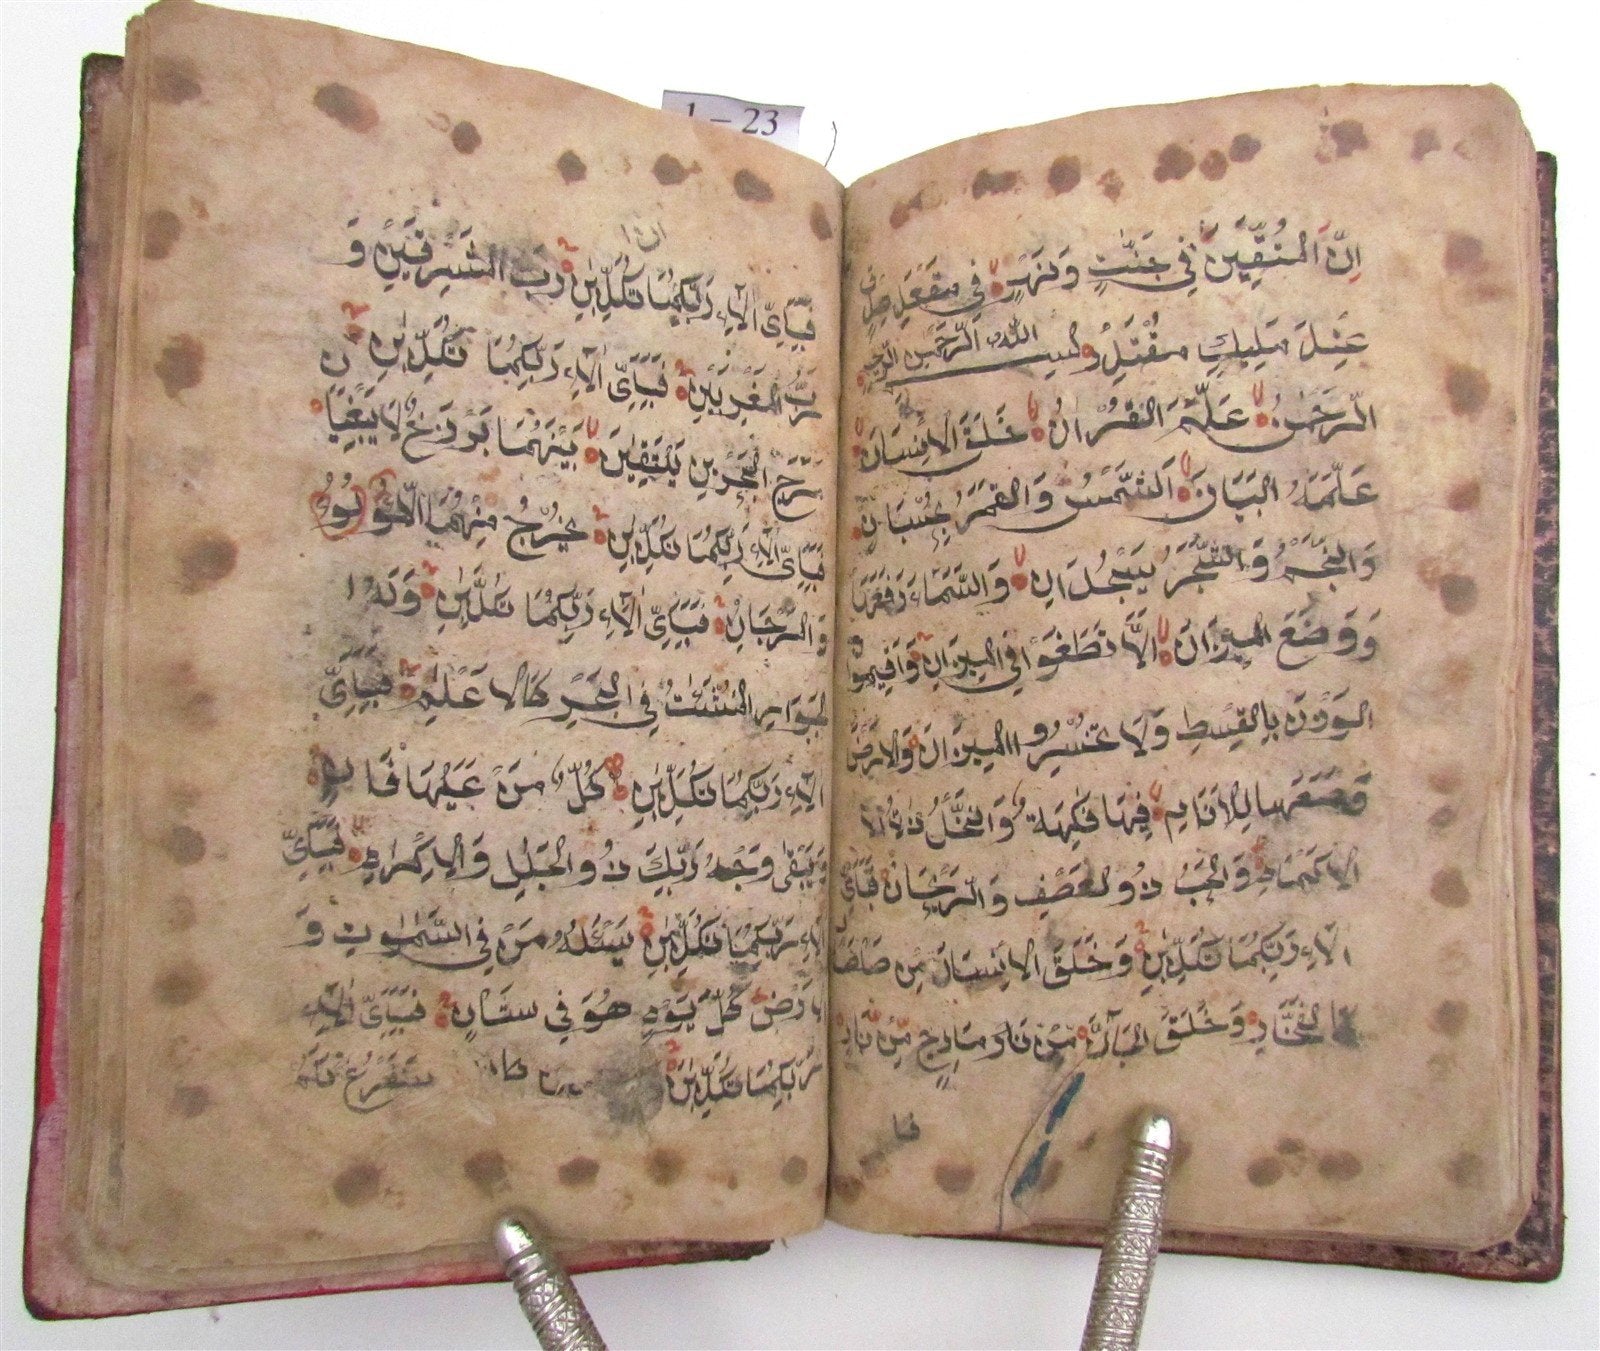 1 – 23
إِنَّ الْمُتَّقِينَ فِي جَنّٰتٍ وَنَهَرٍ فِي مَقْعَدِ صِدْقٍ
عِنْدَ مَلِيكٍ مُقْتَدِرٍ بسم الله الرّحمن الرّحيم
الرَّحْمٰنُ عَلَّمَ الْقُرْاٰنَ خَلَقَ الْاِنْسَانَ
عَلَّمَهُ الْبَيَانَ الشَّمْسُ وَالْقَمَرُ بِحُسْبَانٍ
وَالنَّجْمُ وَالشَّجَرُ يَسْجُدَانِ وَالسَّمَاءَ رَفَعَهَا
وَوَضَعَ الْمِيزَانَ اَلَّا تَطْغَوْا فِي الْمِيزَانِ وَاَقِيمُوا
الْوَزْنَ بِالْقِسْطِ وَلَا تُخْسِرُوا الْمِيزَانَ وَالْاَرْضَ
وَضَعَهَا لِلْاَنَامِ فِيهَا فَاكِهَةٌ وَالنَّخْلُ ذَاتُ
الْاَكْمَامِ وَالْحَبُّ ذُو الْعَصْفِ وَالرَّيْحَانُ فَبِاَيِّ
اٰلَاءِ رَبِّكُمَا تُكَذِّبٰنِ وَخَلَقَ الْاِنْسَانَ مِنْ صَلْصَا
كَالْفَخَّارِ وَخَلَقَ الْجَآنَّ مِنْ مَارِجٍ مِنْ نَارٍ
فبا
فَبِاَيِّ اٰلَاءِ رَبِّكُمَا تُكَذِّبٰنِ رَبُّ الْمَشْرِقَيْنِ وَ
رَبُّ الْمَغْرِبَيْنِ فَبِاَيِّ اٰلَاءِ رَبِّكُمَا تُكَذِّبٰنِ
مَرَجَ الْبَحْرَيْنِ يَلْتَقِيٰنِ بَيْنَهُمَا بَرْزَخٌ لَا يَبْغِيَا
فَبِاَيِّ اٰلَاءِ رَبِّكُمَا تُكَذِّبٰنِ يَخْرُجُ مِنْهُمَا اللُّؤْلُؤُ
وَالْمَرْجَانُ فَبِاَيِّ اٰلَاءِ رَبِّكُمَا تُكَذِّبٰنِ وَلَهُ ا
لْجَوَارِ الْمُنْشَئٰتُ فِي الْبَحْرِ كَالْاَعْلَامِ فَبِاَيِّ
اٰلَاءِ رَبِّكُمَا تُكَذِّبٰنِ كُلُّ مَنْ عَلَيْهَا فَانٍ
وَيَبْقٰى وَجْهُ رَبِّكَ ذُو الْجَلٰلِ وَالْاِكْرَامِ فَبِاَيِّ
اٰلَاءِ رَبِّكُمَا تُكَذِّبٰنِ يَسْئَلُهُ مَنْ فِي السَّمٰوٰتِ وَ
الْاَرْضِ كُلَّ يَوْمٍ هُوَ فِي شَاْنٍ فَبِاَيِّ اٰلَاءِ
رَبِّكُمَا تُكَذِّبٰنِ سَنَفْرُغُ لَكُمْ